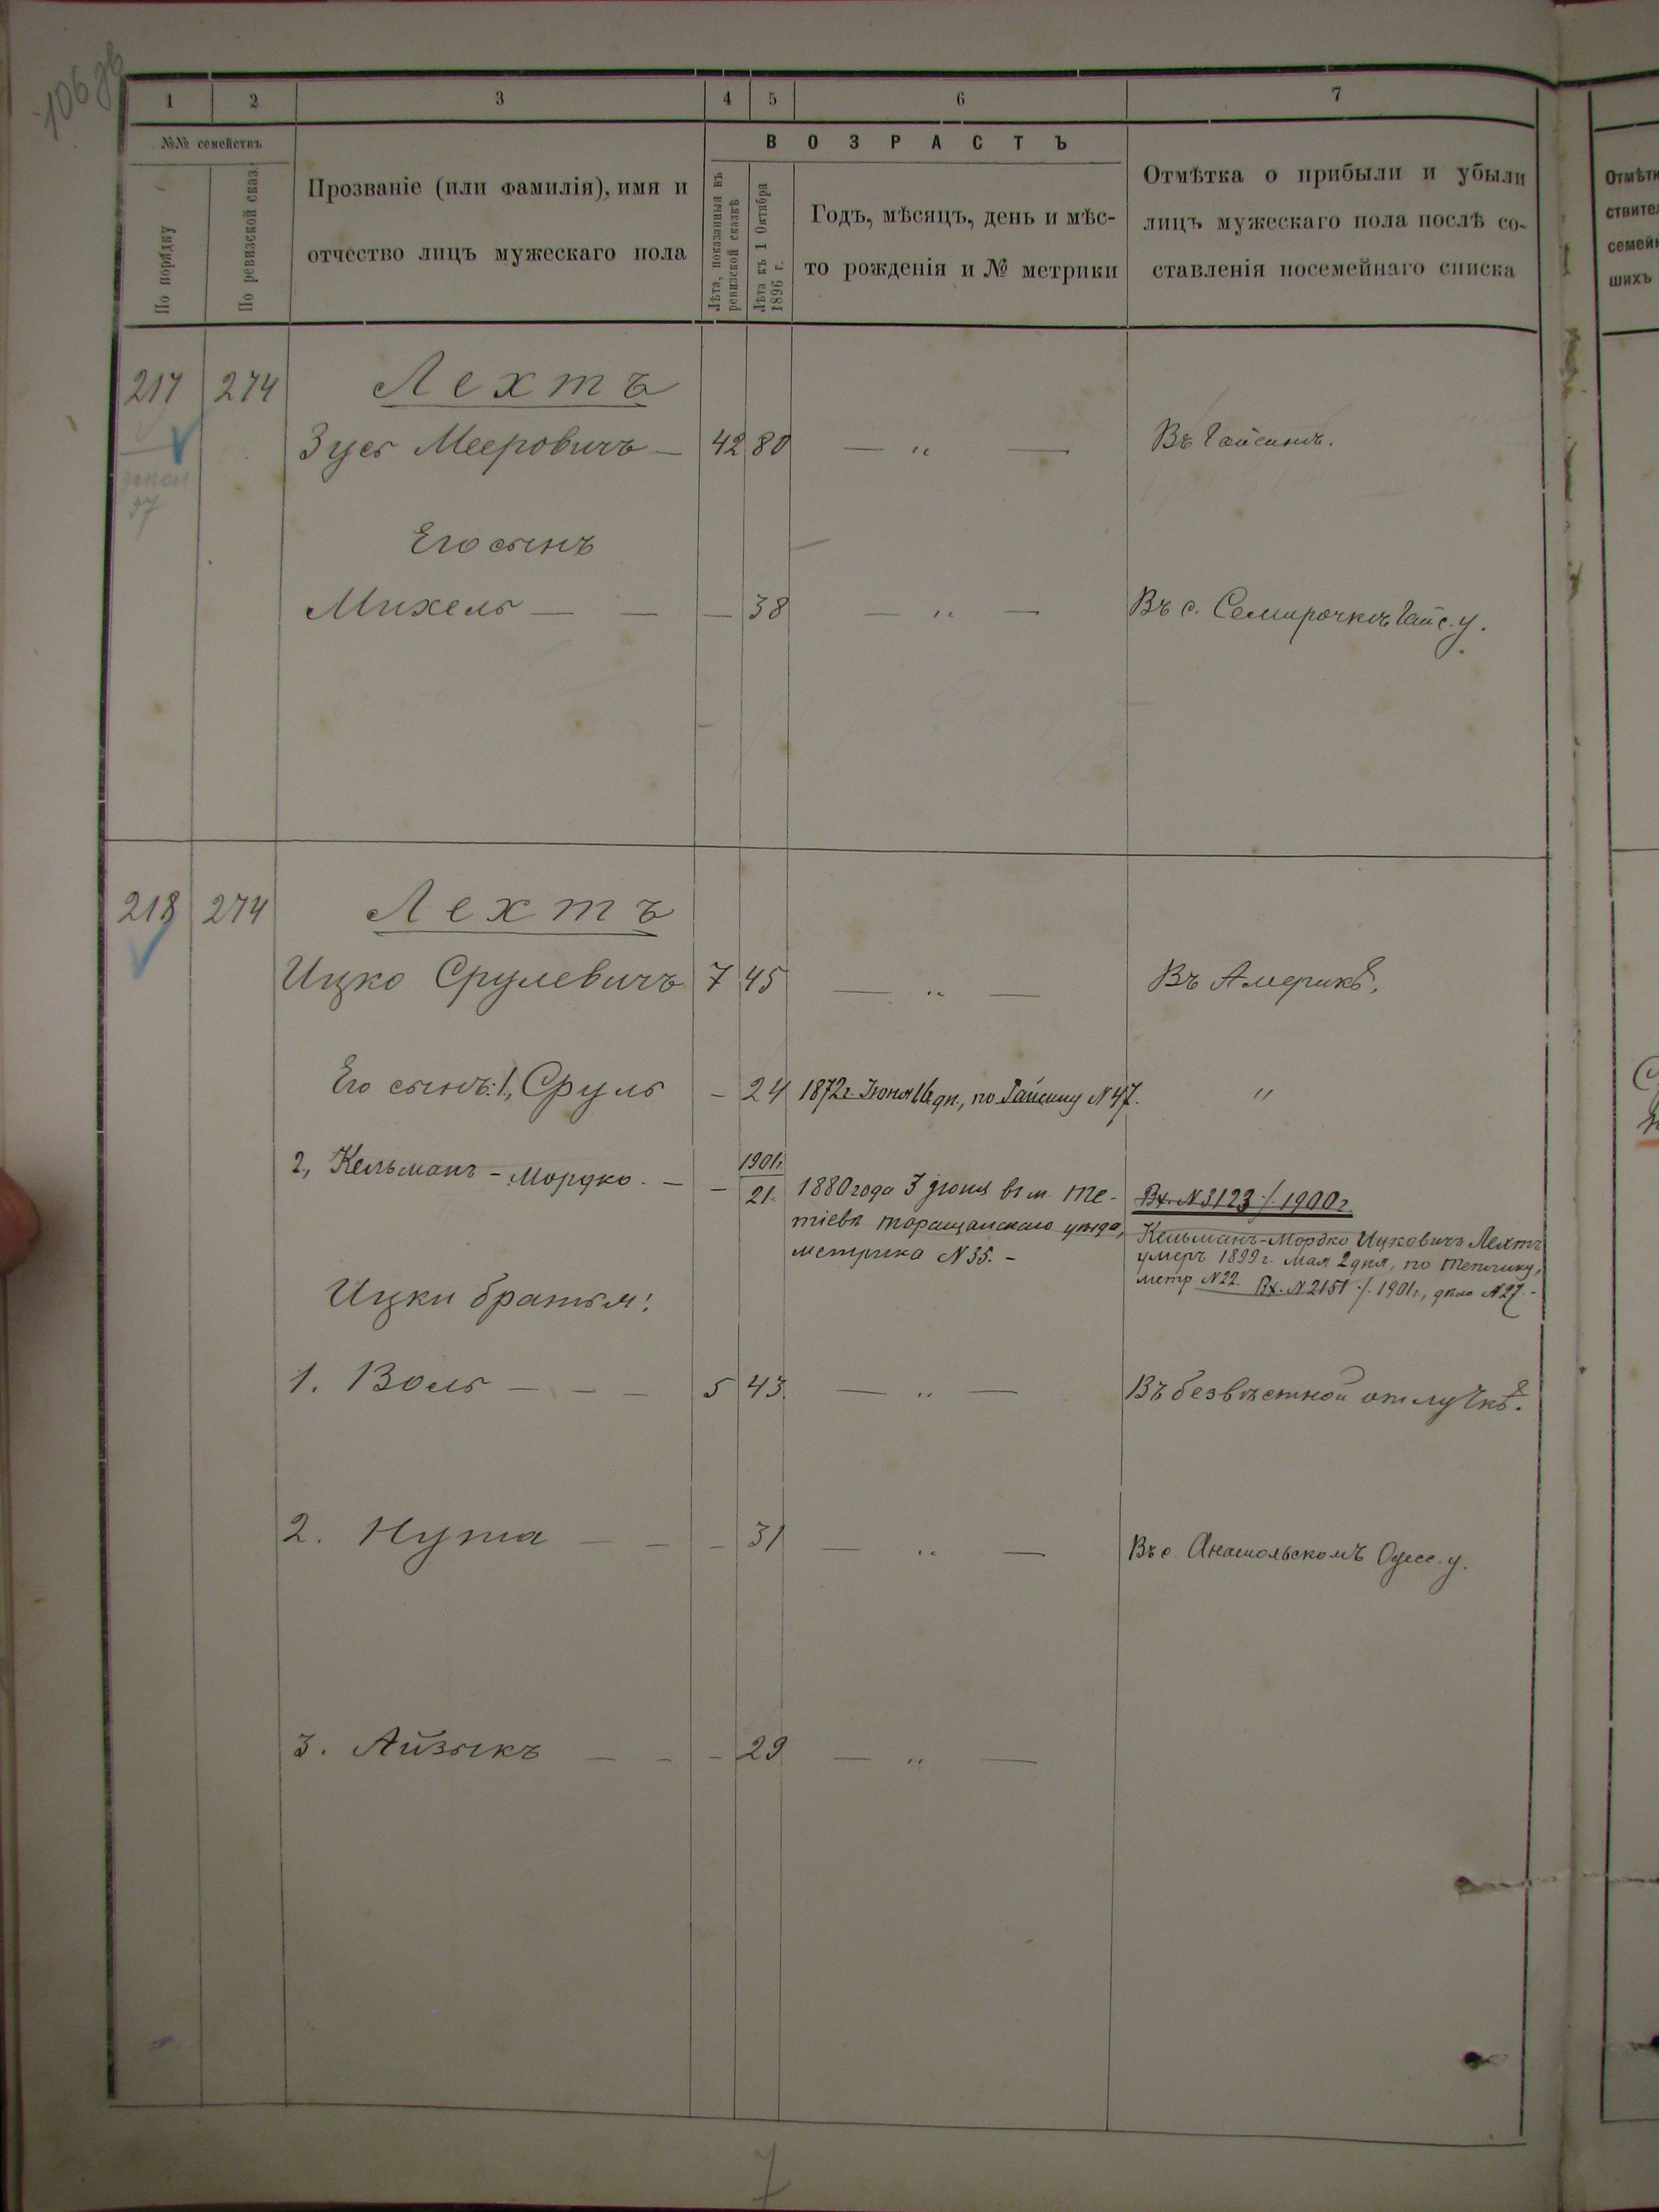 106 об
1 2 3 4 5 6 7
№№ семействъ
По порядку
По ревизской сказ.
Прозваніе (или фамилія), имя и
отчество лицъ мужескаго пола
ВОЗРАСТЪ
Лѣта, показанныя въ
ревизской сказкѣ
Лѣта къ 1 Октября
1896 г.
Годъ, мѣсяцъ, день и мѣс-
то рожденія и № метрики
Отмѣтка о прибыли и убыли
лицъ мужескаго пола послѣ со-
ставленія посемейнаго списка
Отмѣтк
ствител
семейн
шихъ
217 274 Лехтъ
Зусь Мееровичъ — 42 80 — „ — Въ Гайсинѣ.
Его сынъ
Михель — — — 38 — „ — Въ с. Семирочкѣ Гайс. у.
218 274 Лехтъ
Ицко Срулевичъ 7 45 — „ — Въ Америкѣ,
Его сынъ: 1, Сруль - 24 1872 г. Іюня 16 дн., по Гайсину № 47. "
2, Кельманъ-Мордко. — - 1901 г.
21. 1880 года 3 іюня въ м. Те-
тіевѣ таращанскаго уѣзда,
метрика № 35. -
Вх. № 3123 /. 1900 г.
Кельманъ-Мордко Ицковичъ Лехтъ
умеръ 1899 г. мая 2 дня, по Тепличу,
метр № 22. Вх. № 2151 /. 1901 г., дѣло № 27. -
Ицки братья:
1. Воль — — — 5 43. — „ — Въ безвѣстной отлучкѣ.
2. Нута — — - 31 — „ — Въ с. Анатольскомъ Одесс. у.
3. Айзыкъ — - - 29 — „ —
7